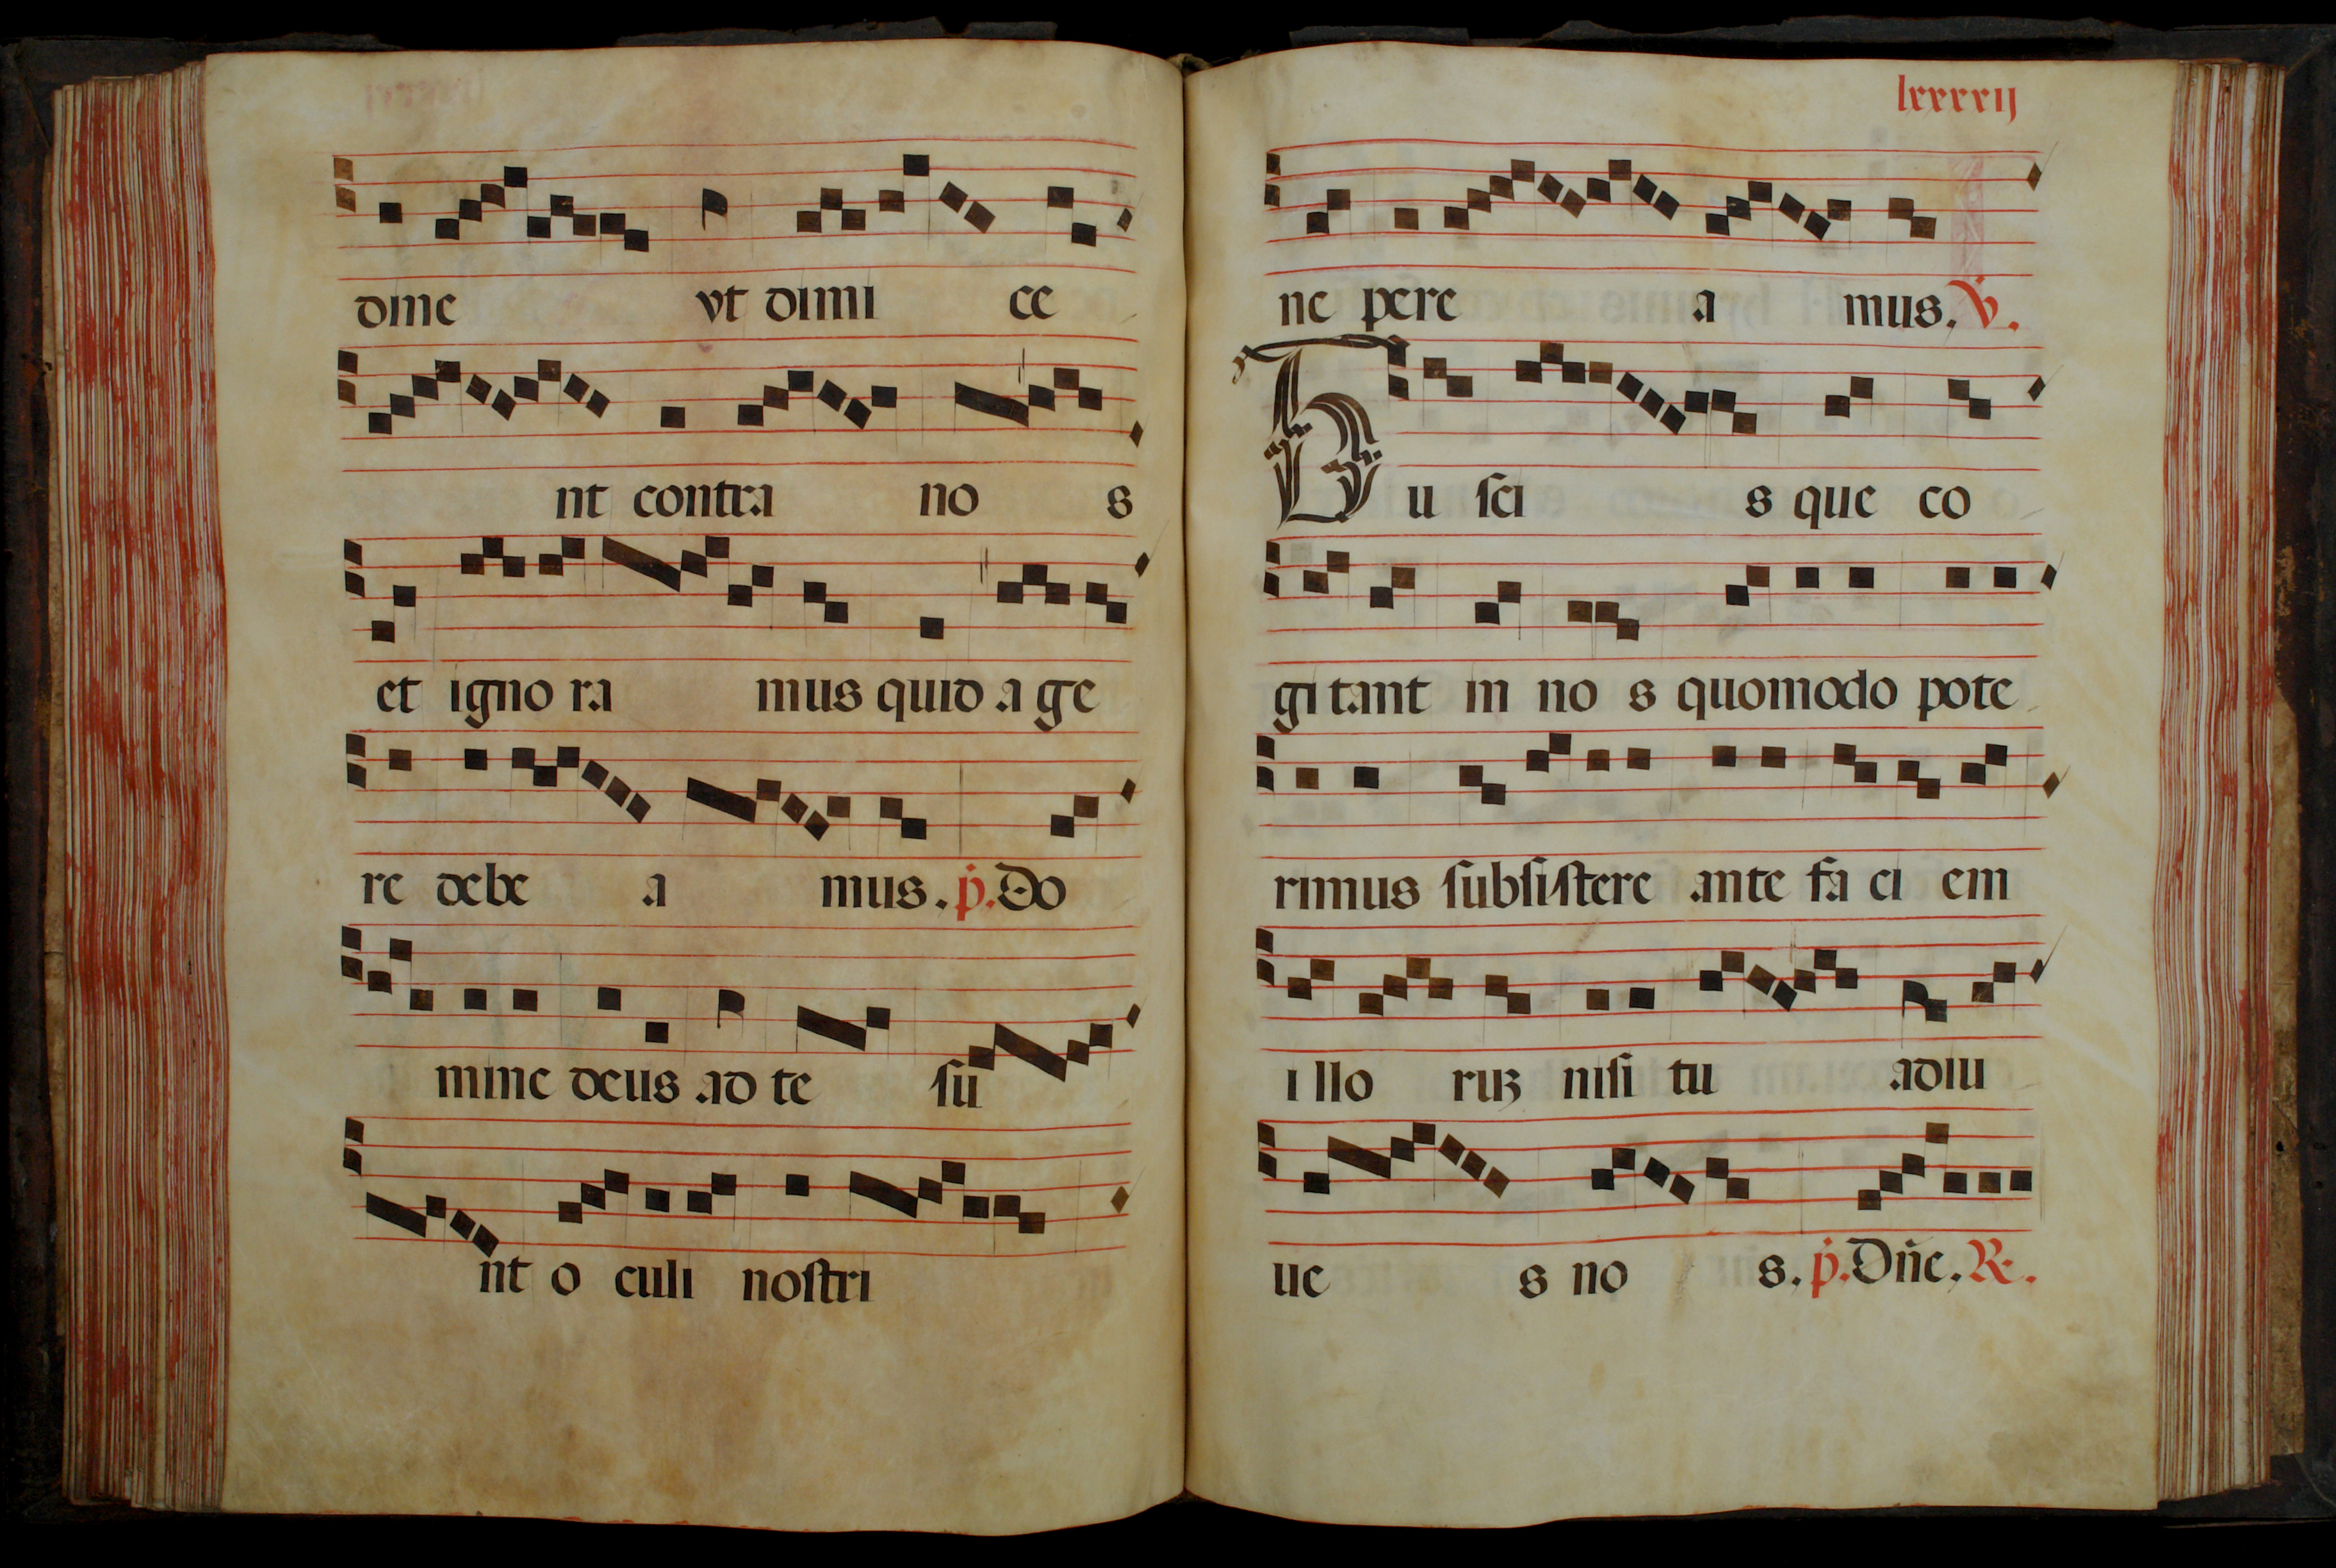 dine vt dimi ce
nt contra no s
et igno ra mus quid a ge
re debe a mus. p. Do
mine deus ad te su
nt o culi nostri
lxxxxij
ne pere a mus. V.
Tu sci s que co
gi tant in no s quomodo pote
rimus subsistere ante fa ci em
i llo ruꝫ nisi tu adiu
ue s no s. p. Dn̄e. R.